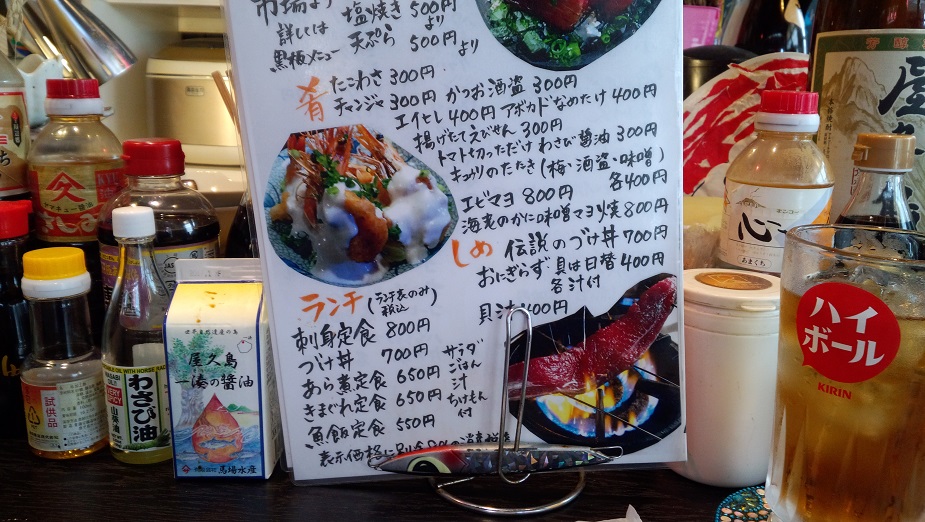 市場より
塩焼き 500円より
詳しくは
黒板メニュー
天ぷら 500円より
肴
たこわさ 300円
かつお酒盗 300円
チャンジャ 300円
エイヒレ 400円
アボカドなめたけ 400円
揚げたてえびせん 300円
トマト切っただけ わさび醤油 300円
キュウリのたたき (梅・酒盗・味噌)
各400円
エビマヨ 800円
海老のかに味噌マヨ焼 800円
しめ
伝説のづけ丼 700円
おにぎらず 具は日替 400円
各汁付
貝汁 400円
ランチ (ランチ表のみ税込)
刺身定食 800円
づけ丼 700円
あら煮定食 650円
きまぐれ定食 650円
魚飯定食 550円
サラダ
ごはん
汁
つけもん
付
表示価格に別
ハイ
ボール
KIRIN
世界自然遺産の島
屋久島
一湊の醤油
馬場水産
わさび油
山本海苔
試供品
キンコー
心
あまくち
屋久
ヤマキュー